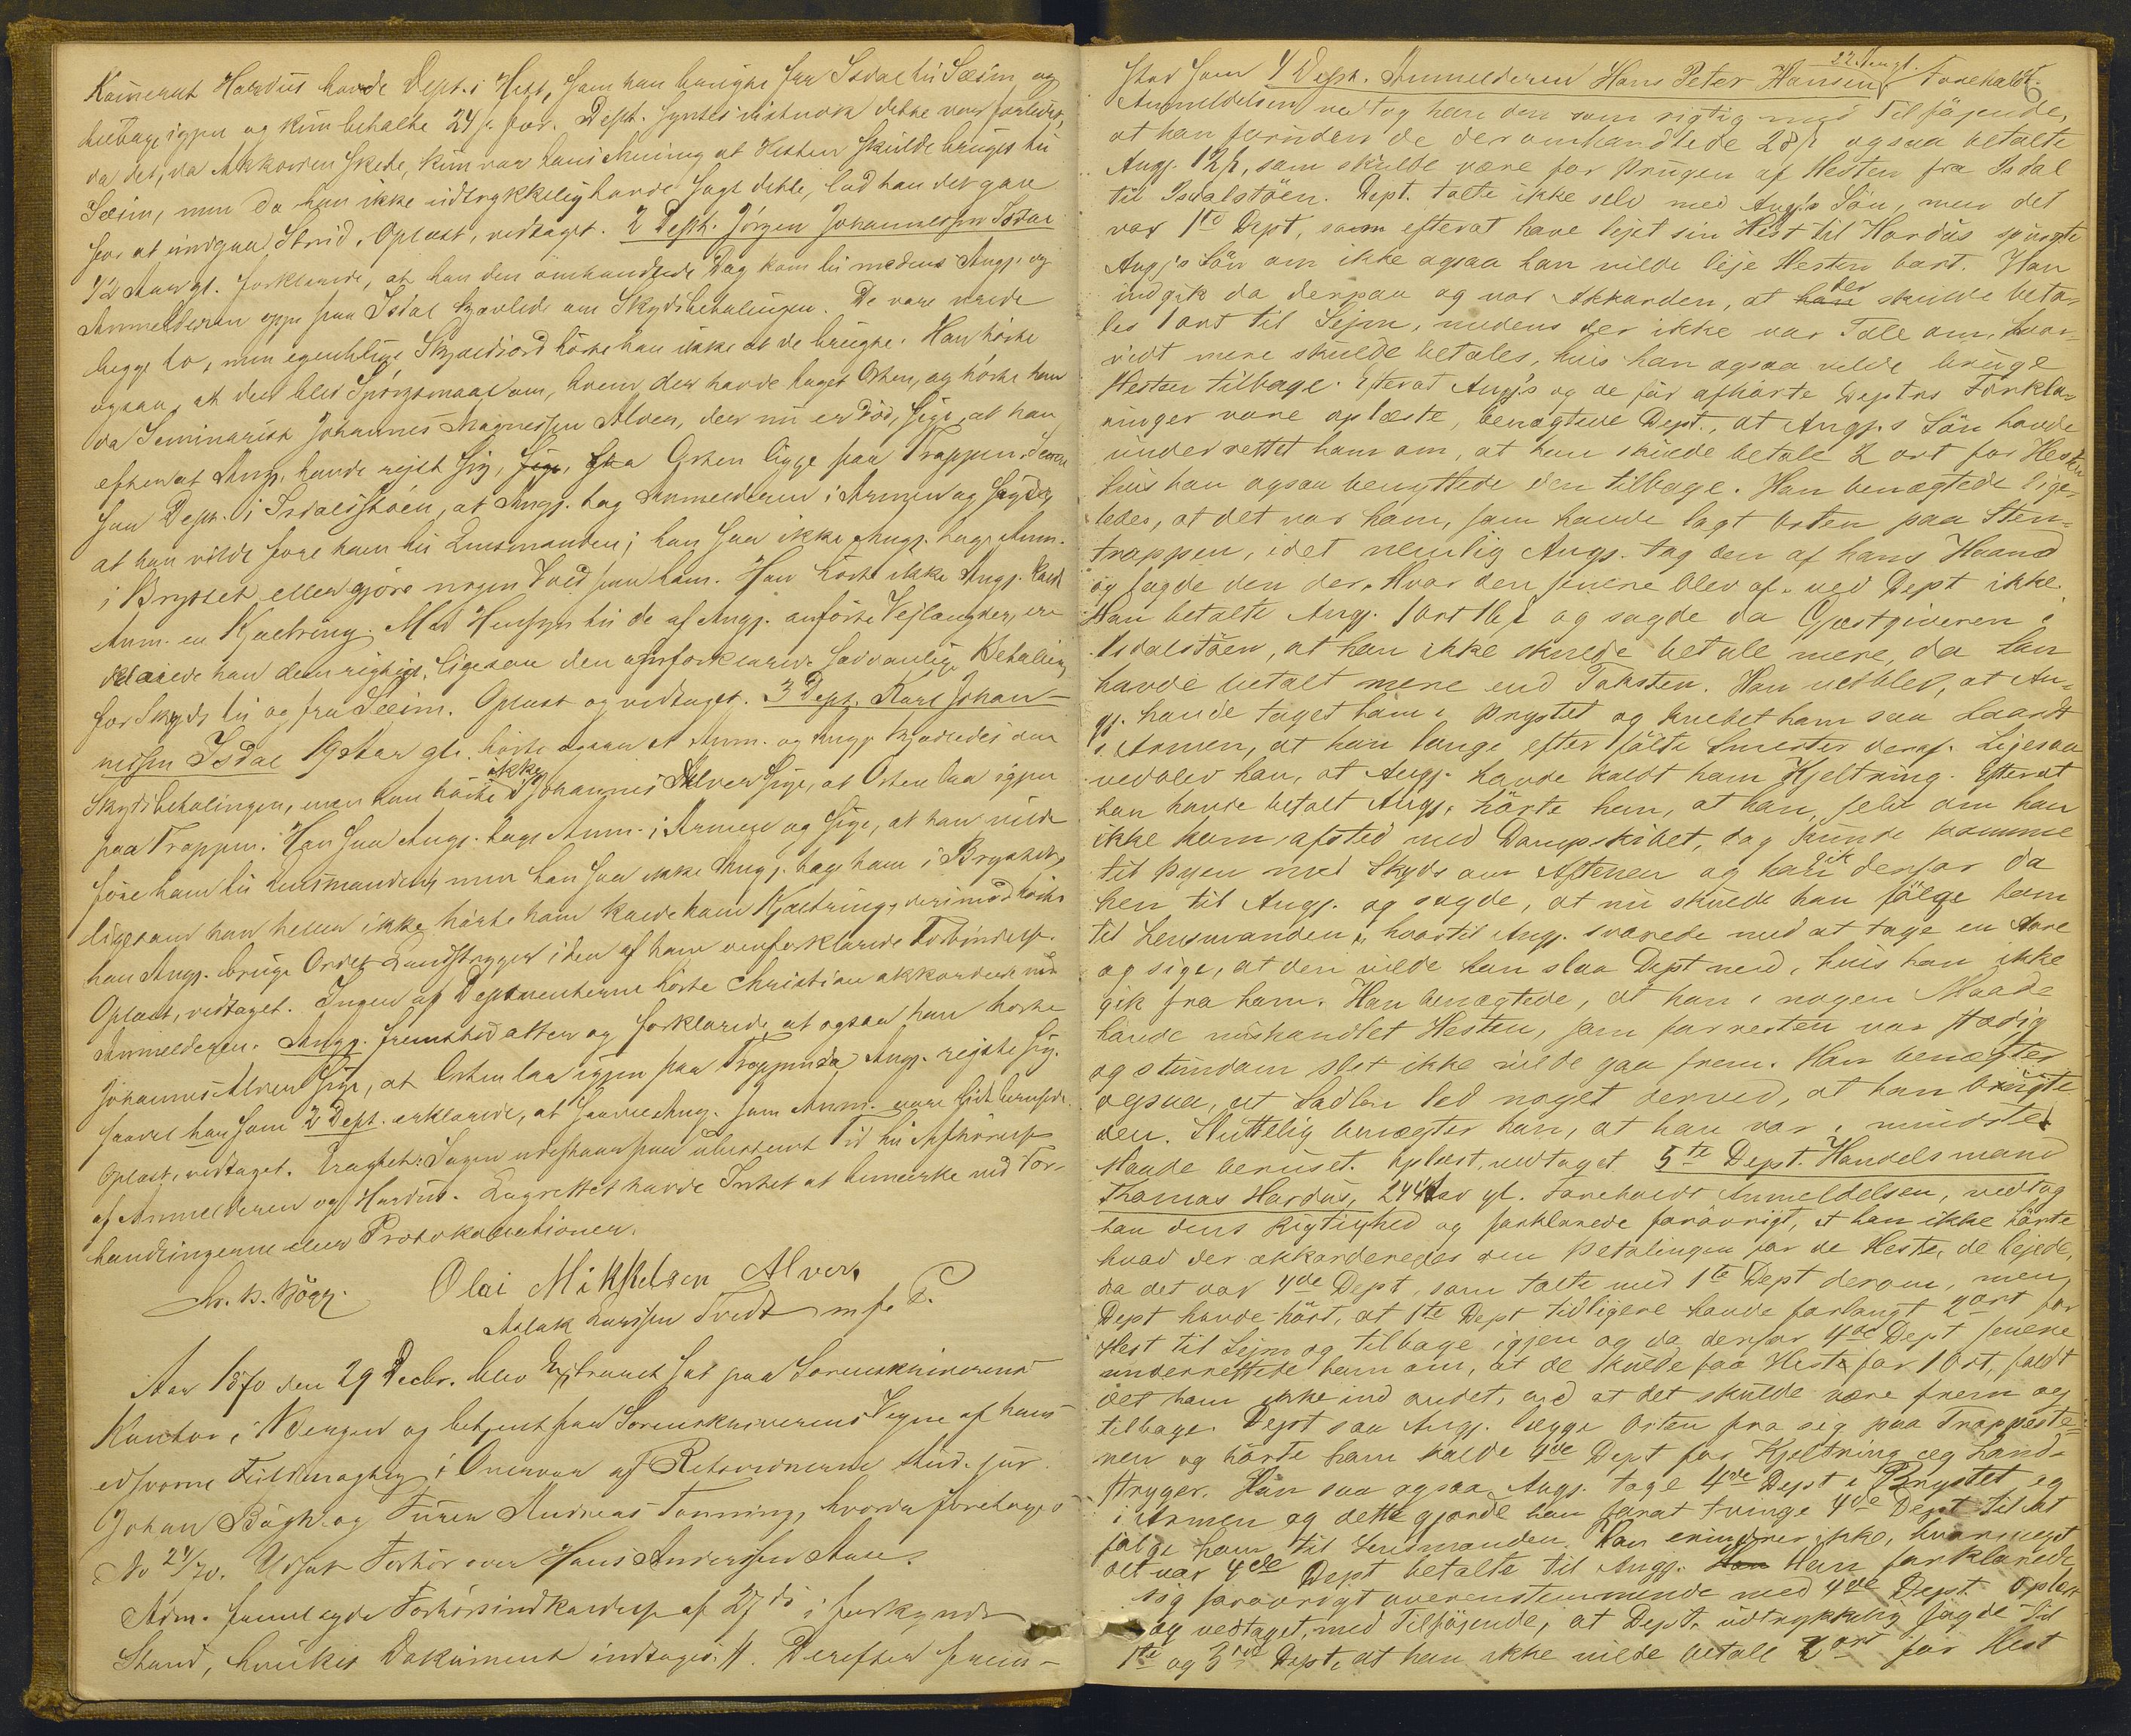 Kamerat Hordus havde Dept.s Hest, som han brugte fra Isdal til Seim og
tilbage igjen og kun betalte 24 s. for. Dept. syntes vistnok dette var for lidet,
da det, da Akkorden skede, kun var hans Mening at Hesten skulde bruges til
Seim, men da han ikke udtrykkelig havde sagt dette, lod han det gaae
for at undgaae Strid. Oplæst, vedtaget. 2 Dept. Jörgen Johannessen Isdal
12 Aar gl. forklarede, at han den omhandlede Dag kom til medens Angj. og
Anmelderen oppe paa Isdal kjævlede om Skydsbetalingen. De vare vrede
begge to, men egentlige Skjældsord hörte han ikke at de brugte. Han hörte
ogsaa, at der blev Spörgsmaal om, hvem der havde taget Orten, og hörte han
da Seminarist Johannes Magnessen Alver, der nu er död, sige, at han
efterat Angj. havde rejst sig, saa Orten ligge paa Trappen. Senere
saa Dept. i Isdalstöen, at Angj. tog Anmelderen i Armen og sagde,
at han vilde före ham til Lensmanden; han saa ikke Angj. tage Anm.
i Brystet eller gjöre nogen Vold paa ham. Han hörte ikke Angj. kalde
Anm. en Kjæltring. Med Hensyn til de af Angj. anförte Vejlængder, er-
klærede han dem rigtige, ligesaa den af forklarede sædvanlige Betaling
for Skyds til og fra Seim. Oplæst og vedtaget. 3 Dept. Karl Johan-
nessen Isdal 19 Aar gl. hörte ogsaa at Anm. og Angj. kjævledes om
Skydsbetalingen, men han hörte ikke Johannes Alver sige, at Orten laa igjen
paa Trappen. Han saa Angj. tage Anm. i Armen og sige, at han vilde
före ham til Lensmanden, men han saa ikke Angj. tog ham i Brystet,
ligesom han heller ikke hörte ham kalde ham Kjæltring, derimod hörte
han Angj. bruge Ordet Landstryger i den af ham omforklarede Forbindelse.
Oplæst, vedtaget. Ingen af Deponenterne hörte Christian akkordere med
Anmelderen. Angj. fremstod atter og forklarede at ogsaa han hörte
Johannes Alver sige, at Orten laa igjen paa Trappen da Angj. rejste sig.
saavel han som 2 Dept. erklærede, at saavel Angj. som Anm. vare lidt berusede.
Oplæst, vedtaget. Eragtet: Sagen udestaar paa ubestemt Tid til Afhörelse
af Anmelderen og Hordus. Lagrettet havde Intet at bemærke ved For-
handlingerne eller Protokollationen.
Chr. B. Bögh. Olai Mikkelsen Alver.
Aslak Larssen Tvedt m f. P.
Aar 1870 den 29 Decbr. blev Extraret sat paa Sorenskriverens
Kontor i Bergen og betjent paa Sorenskriverens Vegne af hans
edsvorne Fuldmægtig i Overvær af Retsvidnerne stud. jur.
Johan Bögh og Furer Andreas Tonning, hvorda foretoges
No 21/70. Udsat Forhör over Hans Anderssen Aase.
Adm. fremlagde Forhörsindkaldelse af 27 ds i forkyndt
Stand, hvilket Dokument indtages. #. Derefter frem-
stod som 4 Dept. Anmelderen Hans Peter Hansen, 22 Aar gl. Foreholdt
Anmeldelsen vedtog han den som rigtig med Tilföjende,
at han foruden de deromhandlede 28 s ogsaa betalte
Angj. 12 s, som skulde være for Brugen af Hesten fra Isdal
til Isdalstöen. Dept. talte ikke selv med Angj.s Sön, men det
var 1te Dept, som efterat have lejet sin Hest til Hordus spurgte
Angj's Sön om ikke ogsaa han vilde leje Hesten bort. Han
indgik da derpaa og var Akkorden, at han der skulde beta-
les 1 ort til Sejm, medens der ikke var Tale om, hvor-
vidt mere skulde betales, hvis han ogsaa vilde bruge
Hesten tilbage. Efterat Angj's og de för afhörte Depters Forkla-
ringer vare oplæste, benægtede Dept., at Angj.s Sön havde
underrettet ham om, at han skulde betale 2 ort for Hesten
hvis han ogsaa benyttede den tilbage. Han benægtede lige-
ledes, at det var ham, som havde lagt Orten paa Sten-
trappen, idet nemlig Angj. tog den af hans Haand
og lagde den der. Hvor den senere blev af, ved Dept ikke.
Han betalte Angj. 1 ort 16 s og sagde da Gjæstgiveren i
Isdalstöen, at han ikke skulde betale mere, da han
havde betalt mere end Taksten. Han vedblev, at An-
gj. havde taget ham i Brystet og knebet ham saa haardt
i Armen, at han længe efter fölte Smerter deraf. Ligesaa
vedblev han, at Angj. havde kaldt ham Kjeltring. Efterat
han havde betalt Angj. hörte han, at han, selv om han
ikke kom afsted med Dampskibet, dog kunde komme
til Byen med Skyds om Aftenen og han gik derfor da
hen til Angj. og sagde, at nu skulde han fölge ham
til Lensmanden, hvortil Angj. svarede med at tage en Aare
og sige, at den vilde han slaa Dept med, hvis han ikke
gik fra ham. Han benægtede, at han i nogen Maade
havde mishandlet Hesten, som forresten var stædig
og stundom slet ikke vilde gaa frem. Han benægter
ogsaa, at Sadlen led noget derved, at han brugte
den. Sluttelig benægter han, at han var i mindste
Maade beruset. Oplæst, vedtaget. 5te Dept. Handelsmand
Thomas Hordus, 24 Aar gl. Foreholdt Anmeldelsen, vedtog
han dens Rigtighed og forklarede forövrigt, at han ikke hörte
hvad der akkorderedes om Betalingen for de Heste, de lejede,
da det var 4de Dept, som talte med 1te Dept derom, men
Dept havde hört, at 1te Dept tidligere havde forlangt 2 ort for
Hest til Sejm og tilbage igjen og da derfor 4de Dept senere
underrettede ham om, at de skulde faa Hest for 1 Ort, faldt
det ham ikke ind andet, end at det skulde være frem og
tilbage. Dept saa Angj. lægge Orten fra sig paa Trappeste-
nen og hörte ham kalde 4de Dept for Kjeltring og Land-
stryger. Han saa ogsaa Angj. tage 4de Dept i Brystet og
i Armen og dette gjorde han forat tvinge 4de Dept til at
fölge ham til Lensmanden. Han erindrer ikke, hvormeget
det var 4de Dept betalte til Angj. Han forklarede
sig forövrigt overensstemmende med 4de Dept. Oplæst
og vedtaget, med Tilföjende, at Dept. udtrykkelig sagde til
1te og 3die Dept, at han ikke vilde betale 2 ort for Hest